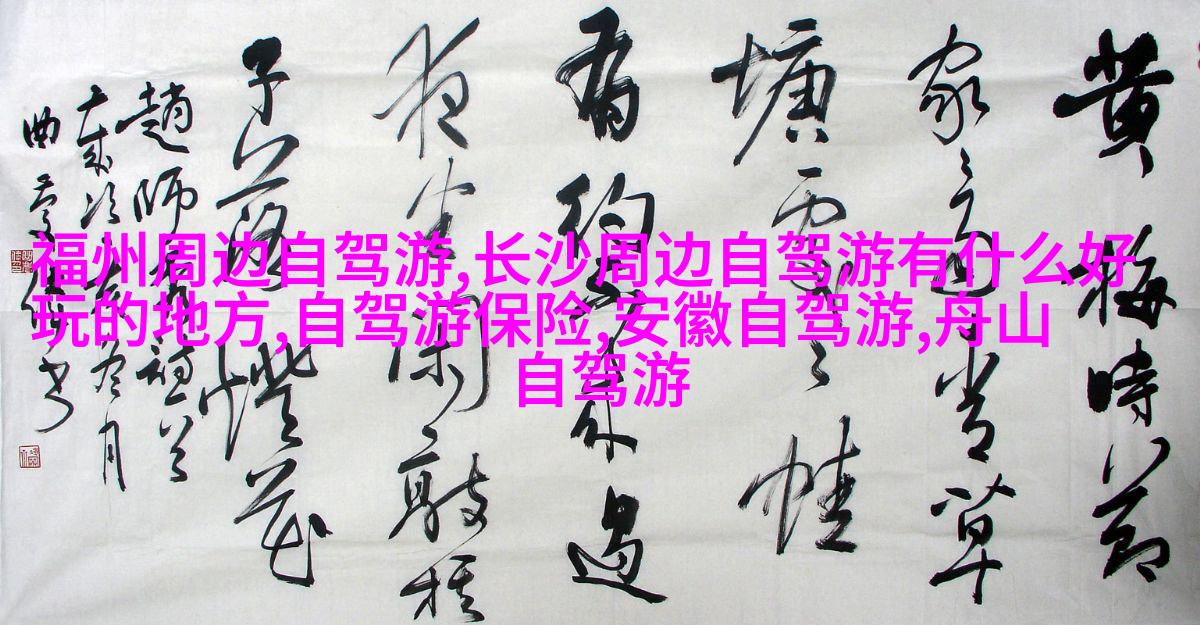 福州周边自驾游,长沙周边自驾游有什么好
玩的地方,自驾游保险,安徽自驾游,舟山
自驾游
黄梅時節
家々青草
塘處々蛙
有約不来過
夜半闲敲棋
子落燈花
趙師秀